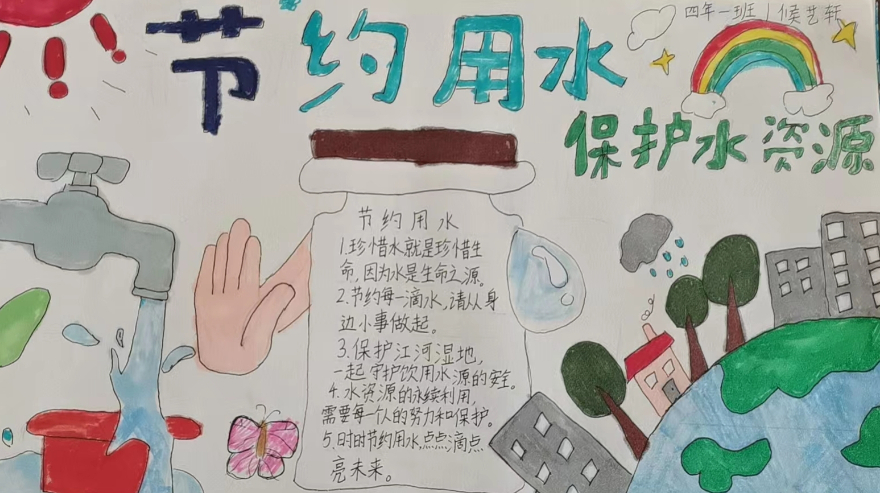 节约用水
四年一班 候艺轩
保护水资源
节约用水
1.珍惜水就是珍惜生
命,因为水是生命之源。
2.节约每一滴水,请从身
边小事做起。
3.保护江河湿地,
一起守护饮用水源的安全。
4.水资源的永续利用,
需要每个人的努力和保护。
5、时时节约用水点点滴点
亮未来。